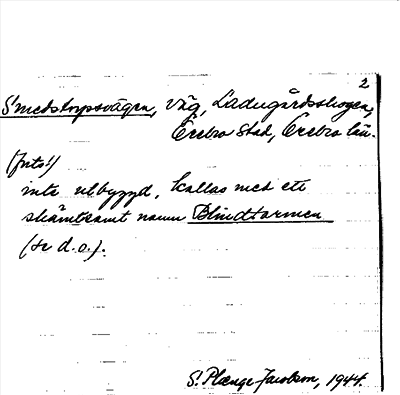 2
Smedstorpsvägen, väg, Ladugårdsskogen,
Örebro stad, Örebro län.
(Forts!)
inte utbyggd, kallas med ett
skämtsamt namn Blindtarmen
(se d.o.).
S. Plænge Jacobson, 1944.